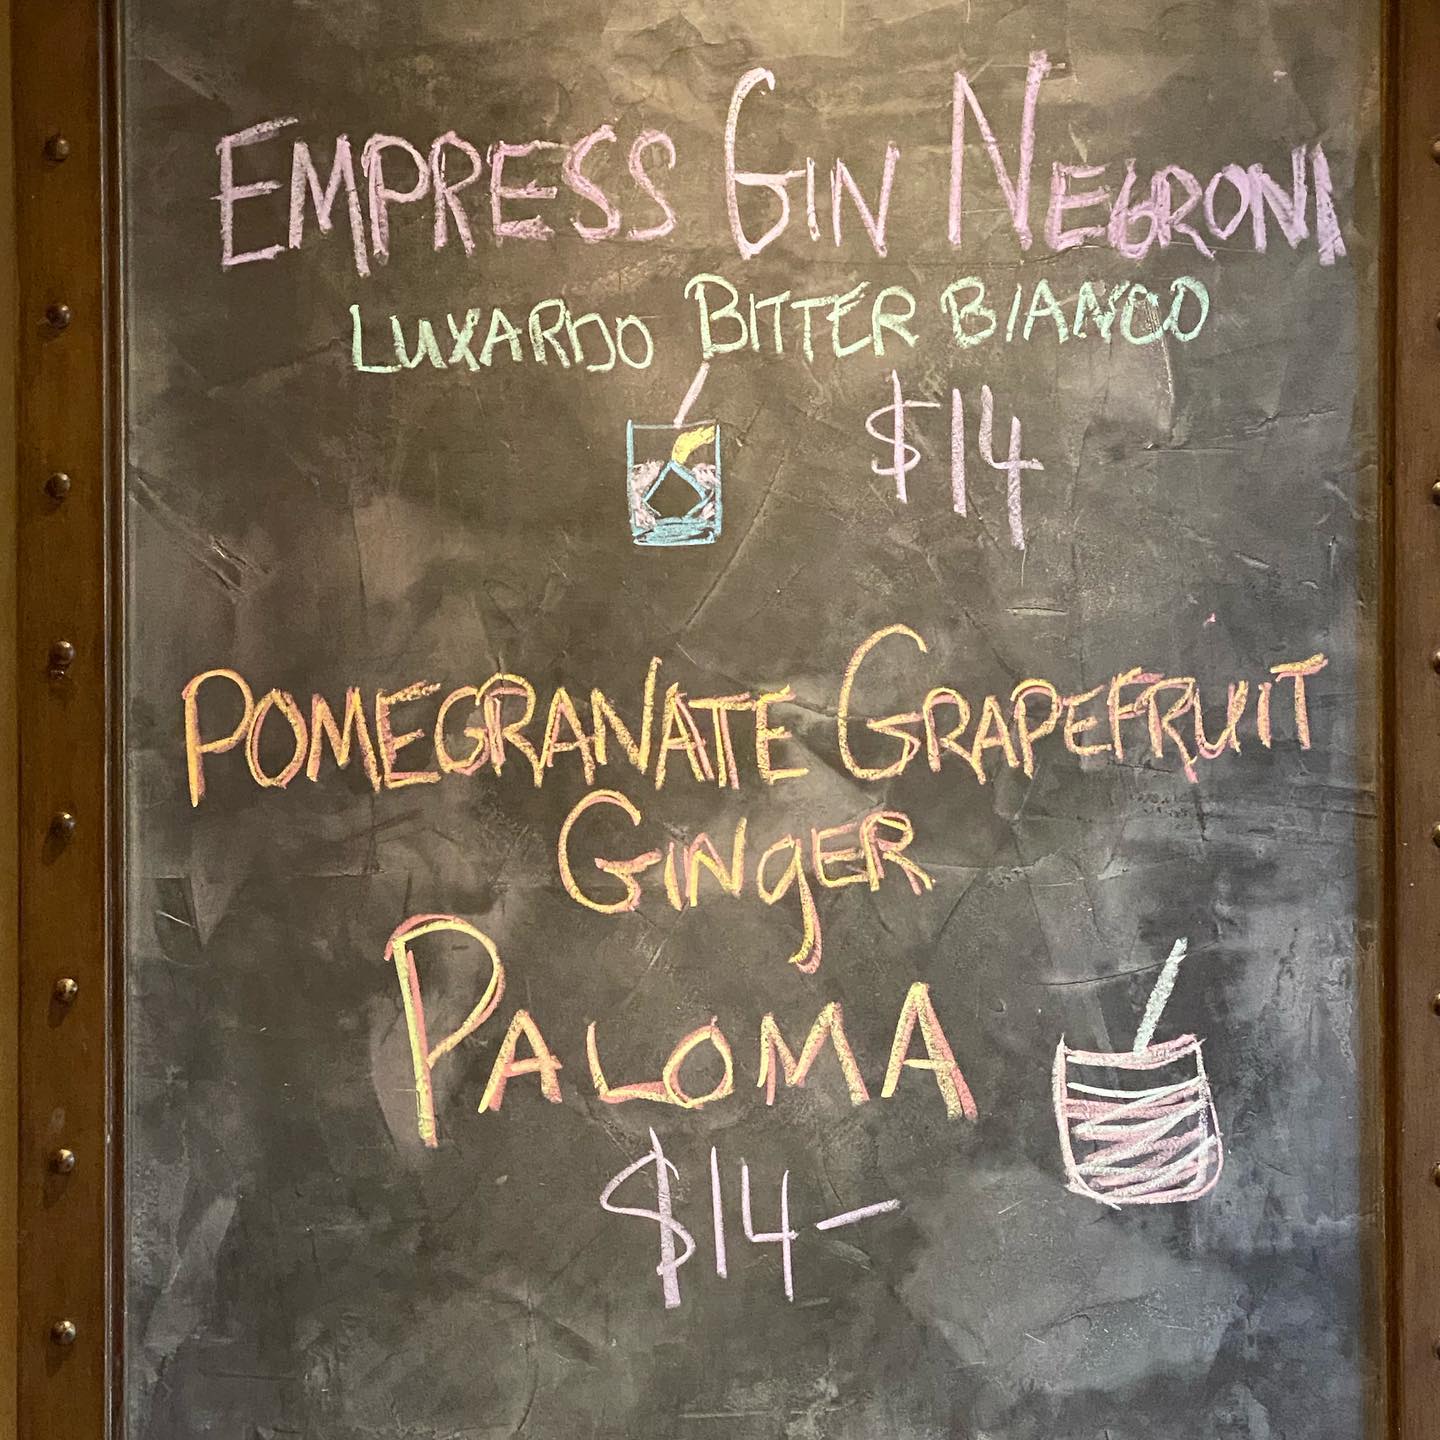 EMPRESS GIN NEGRONI
LUXARDO BITTER BIANCO
$14
POMEGRANATE GRAPEFRUIT
GINgER
PALOMA
$14–